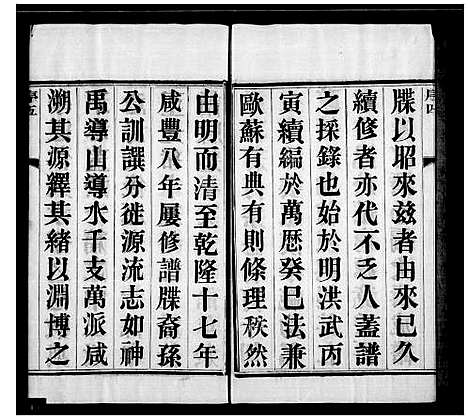 序四
牒以昭來兹者由來已久
續修者亦代不乏人蓋譜
之採錄也始於明洪武丙
寅續編於萬厯癸巳法兼
歐蘇有典有則條理秩然
由明而清至乾隆十七年
咸豐八年屢修譜牒裔孫
公訓譔分徙源流志如神
禹導山導水千支萬派咸
溯其源繹其緒以淵博之
序五